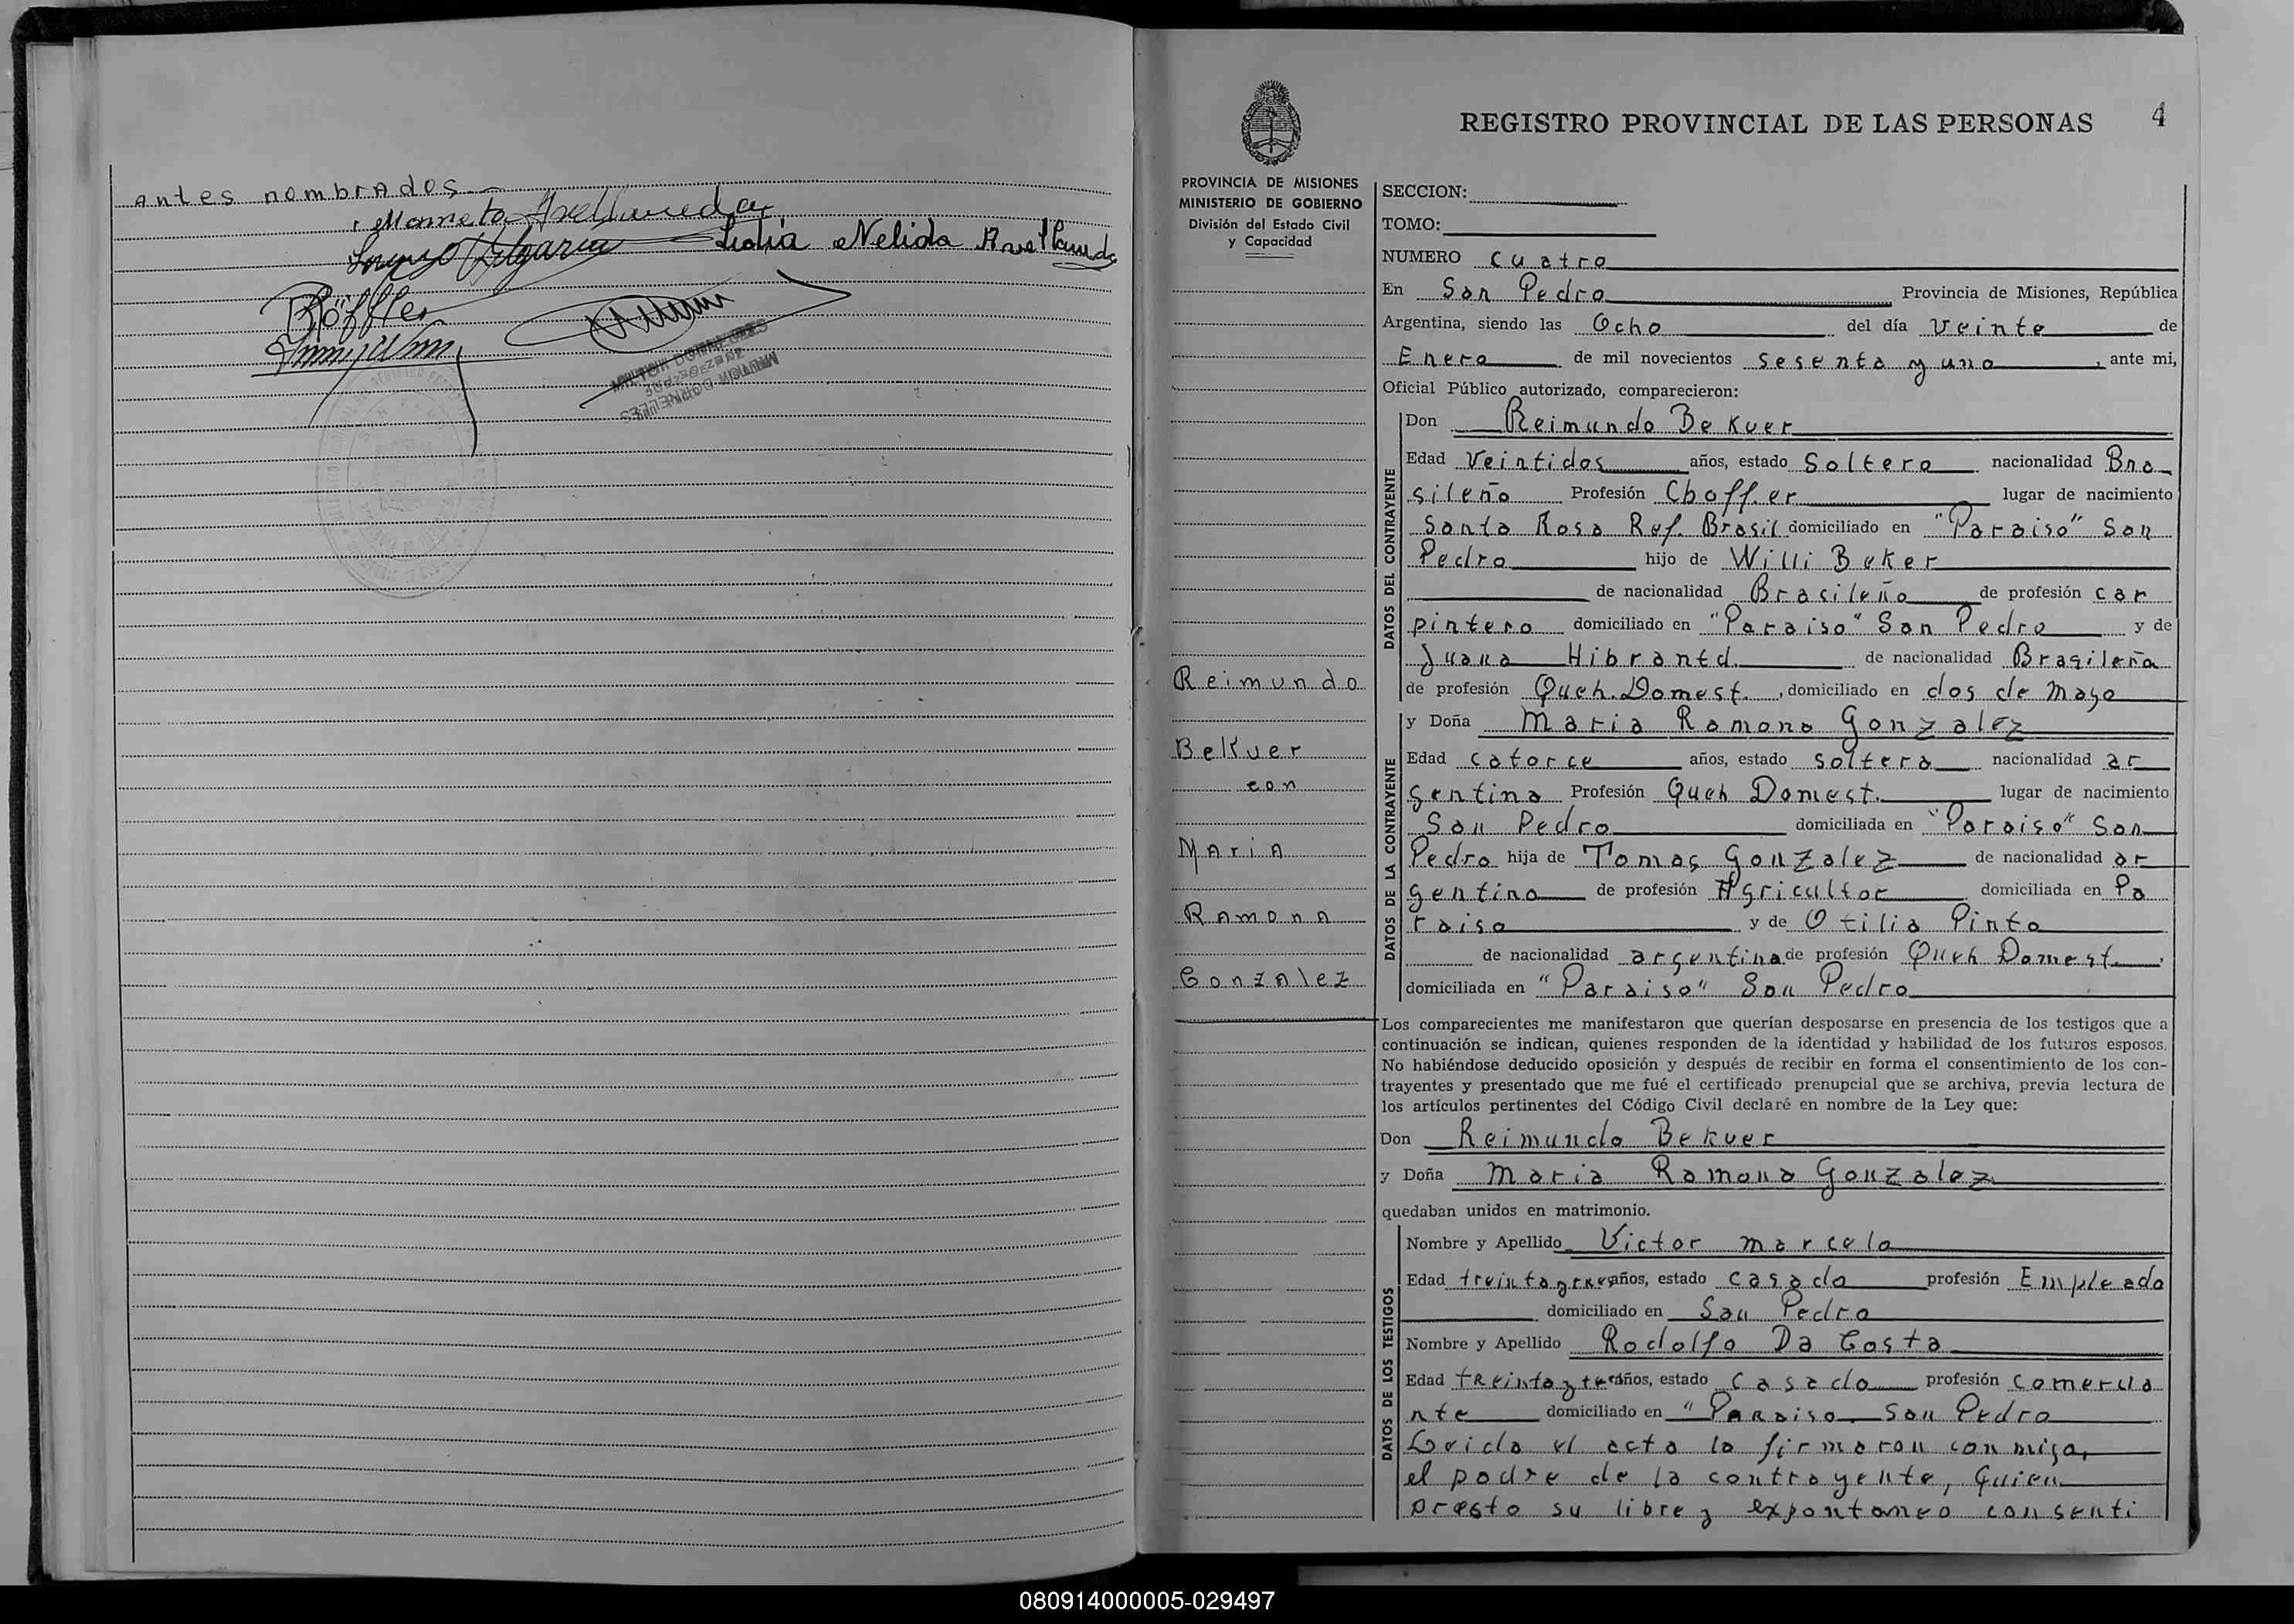 antes nombrados
Lidia Nelida Avellaneda
Röffler
MILTON DORNELLES
4
REGISTRO PROVINCIAL DE LAS PERSONAS
PROVINCIA DE MISIONES
MINISTERIO DE GOBIERNO
División del Estado Civil
y Capacidad
SECCION:
TOMO:
NUMERO cuatro
En San Pedro Provincia de Misiones, República
Argentina, siendo las Ocho del día veinte de
Enero de mil novecientos sesenta y uno, ante mi,
Oficial Público autorizado, comparecieron:
DATOS DEL CONTRAYENTE
Don Reimundo Bekuer
Edad Veintidos años, estado Soltero nacionalidad Bra
sileño Profesión Choffer lugar de nacimiento
Santa Rosa Ref. Brasil domiciliado en "Paraiso" San
Pedro hijo de Willi Beker
de nacionalidad Brasileño de profesión car
pintero domiciliado en "Paraiso" San Pedro y de
Juana Hibrantd. de nacionalidad Brasileña
de profesión Queh. Domest. , domiciliado en dos de Mayo
Reimundo
Bekuer
con
Maria
Ramona
Gonzalez
DATOS DE LA CONTRAYENTE
y Doña Maria Ramona Gonzalez
Edad catorce años, estado soltera nacionalidad ar
gentina Profesión Queh Domest. lugar de nacimiento
San Pedro domiciliada en "Paraiso" San
Pedro hija de Tomas Gonzalez de nacionalidad ar
gentino de profesión Agricultor domiciliada en Pa
raiso y de Otilia Pinto
de nacionalidad argentina de profesión Queh Domest.
domiciliada en "Paraiso" San Pedro
Los comparecientes me manifestaron que querían desposarse en presencia de los testigos que a
continuación se indican, quienes responden de la identidad y habilidad de los futuros esposos.
No habiéndose deducido oposición y después de recibir en forma el consentimiento de los con-
trayentes y presentado que me fué el certificado prenupcial que se archiva, previa lectura de
los artículos pertinentes del Código Civil declaré en nombre de la Ley que:
Don Reimundo Bekuer
y Doña Maria Ramona Gonzalez
quedaban unidos en matrimonio.
DATOS DE LOS TESTIGOS
Nombre y Apellido Victor Marcelo
Edad treinta y tres años, estado casado profesión Empleado
domiciliado en San Pedro
Nombre y Apellido Rodolfo Da Costa
Edad treinta y tres años, estado Casado profesión comercia
nte domiciliado en "Paraiso San Pedro
Leida el acta la firmaron conmigo,
el padre de la contrayente, Quien
presto su libre y expontaneo consenti
080914000005-029497